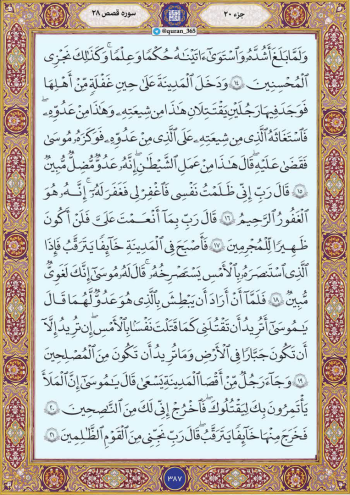 سوره قصص ۲۸
جزء ۲۰
@quran_365
وَلَمَّا بَلَغَ أَشُدَّهُۥ وَٱسْتَوَىٰٓ ءَاتَيْنَٰهُ حُكْمًا وَعِلْمًا ۚ وَكَذَٰلِكَ نَجْزِى
ٱلْمُحْسِنِينَ ۝١٤ وَدَخَلَ ٱلْمَدِينَةَ عَلَىٰ حِينِ غَفْلَةٍ مِّنْ أَهْلِهَا
فَوَجَدَ فِيهَا رَجُلَيْنِ يَقْتَتِلَانِ هَٰذَا مِن شِيعَتِهِۦ وَهَٰذَا مِنْ عَدُوِّهِۦ ۖ
فَٱسْتَغَٰثَهُ ٱلَّذِى مِن شِيعَتِهِۦ عَلَى ٱلَّذِى مِنْ عَدُوِّهِۦ فَوَكَزَهُۥ مُوسَىٰ
فَقَضَىٰ عَلَيْهِ ۖ قَالَ هَٰذَا مِنْ عَمَلِ ٱلشَّيْطَٰنِ ۖ إِنَّهُۥ عَدُوٌّ مُّضِلٌّ مُّبِينٌ
۝١٥ قَالَ رَبِّ إِنِّى ظَلَمْتُ نَفْسِى فَٱغْفِرْ لِى فَغَفَرَ لَهُۥٓ ۚ إِنَّهُۥ هُوَ
ٱلْغَفُورُ ٱلرَّحِيمُ ۝١٦ قَالَ رَبِّ بِمَآ أَنْعَمْتَ عَلَىَّ فَلَنْ أَكُونَ
ظَهِيرًا لِّلْمُجْرِمِينَ ۝١٧ فَأَصْبَحَ فِى ٱلْمَدِينَةِ خَآئِفًا يَتَرَقَّبُ فَإِذَا
ٱلَّذِى ٱسْتَنصَرَهُۥ بِٱلْأَمْسِ يَسْتَصْرِخُهُۥ ۚ قَالَ لَهُۥ مُوسَىٰٓ إِنَّكَ لَغَوِىٌّ
مُّبِينٌ ۝١٨ فَلَمَّآ أَنْ أَرَادَ أَن يَبْطِشَ بِٱلَّذِى هُوَ عَدُوٌّ لَّهُمَا قَالَ
يَٰمُوسَىٰٓ أَتُرِيدُ أَن تَقْتُلَنِى كَمَا قَتَلْتَ نَفْسًۢا بِٱلْأَمْسِ ۖ إِن تُرِيدُ إِلَّآ
أَن تَكُونَ جَبَّارًا فِى ٱلْأَرْضِ وَمَا تُرِيدُ أَن تَكُونَ مِنَ ٱلْمُصْلِحِينَ
۝١٩ وَجَآءَ رَجُلٌ مِّنْ أَقْصَا ٱلْمَدِينَةِ يَسْعَىٰ قَالَ يَٰمُوسَىٰٓ إِنَّ ٱلْمَلَأَ
يَأْتَمِرُونَ بِكَ لِيَقْتُلُوكَ فَٱخْرُجْ إِنِّى لَكَ مِنَ ٱلنَّٰصِحِينَ ۝٢٠
فَخَرَجَ مِنْهَا خَآئِفًا يَتَرَقَّبُ ۖ قَالَ رَبِّ نَجِّنِى مِنَ ٱلْقَوْمِ ٱلظَّٰلِمِينَ ۝٢١
۳۸۷